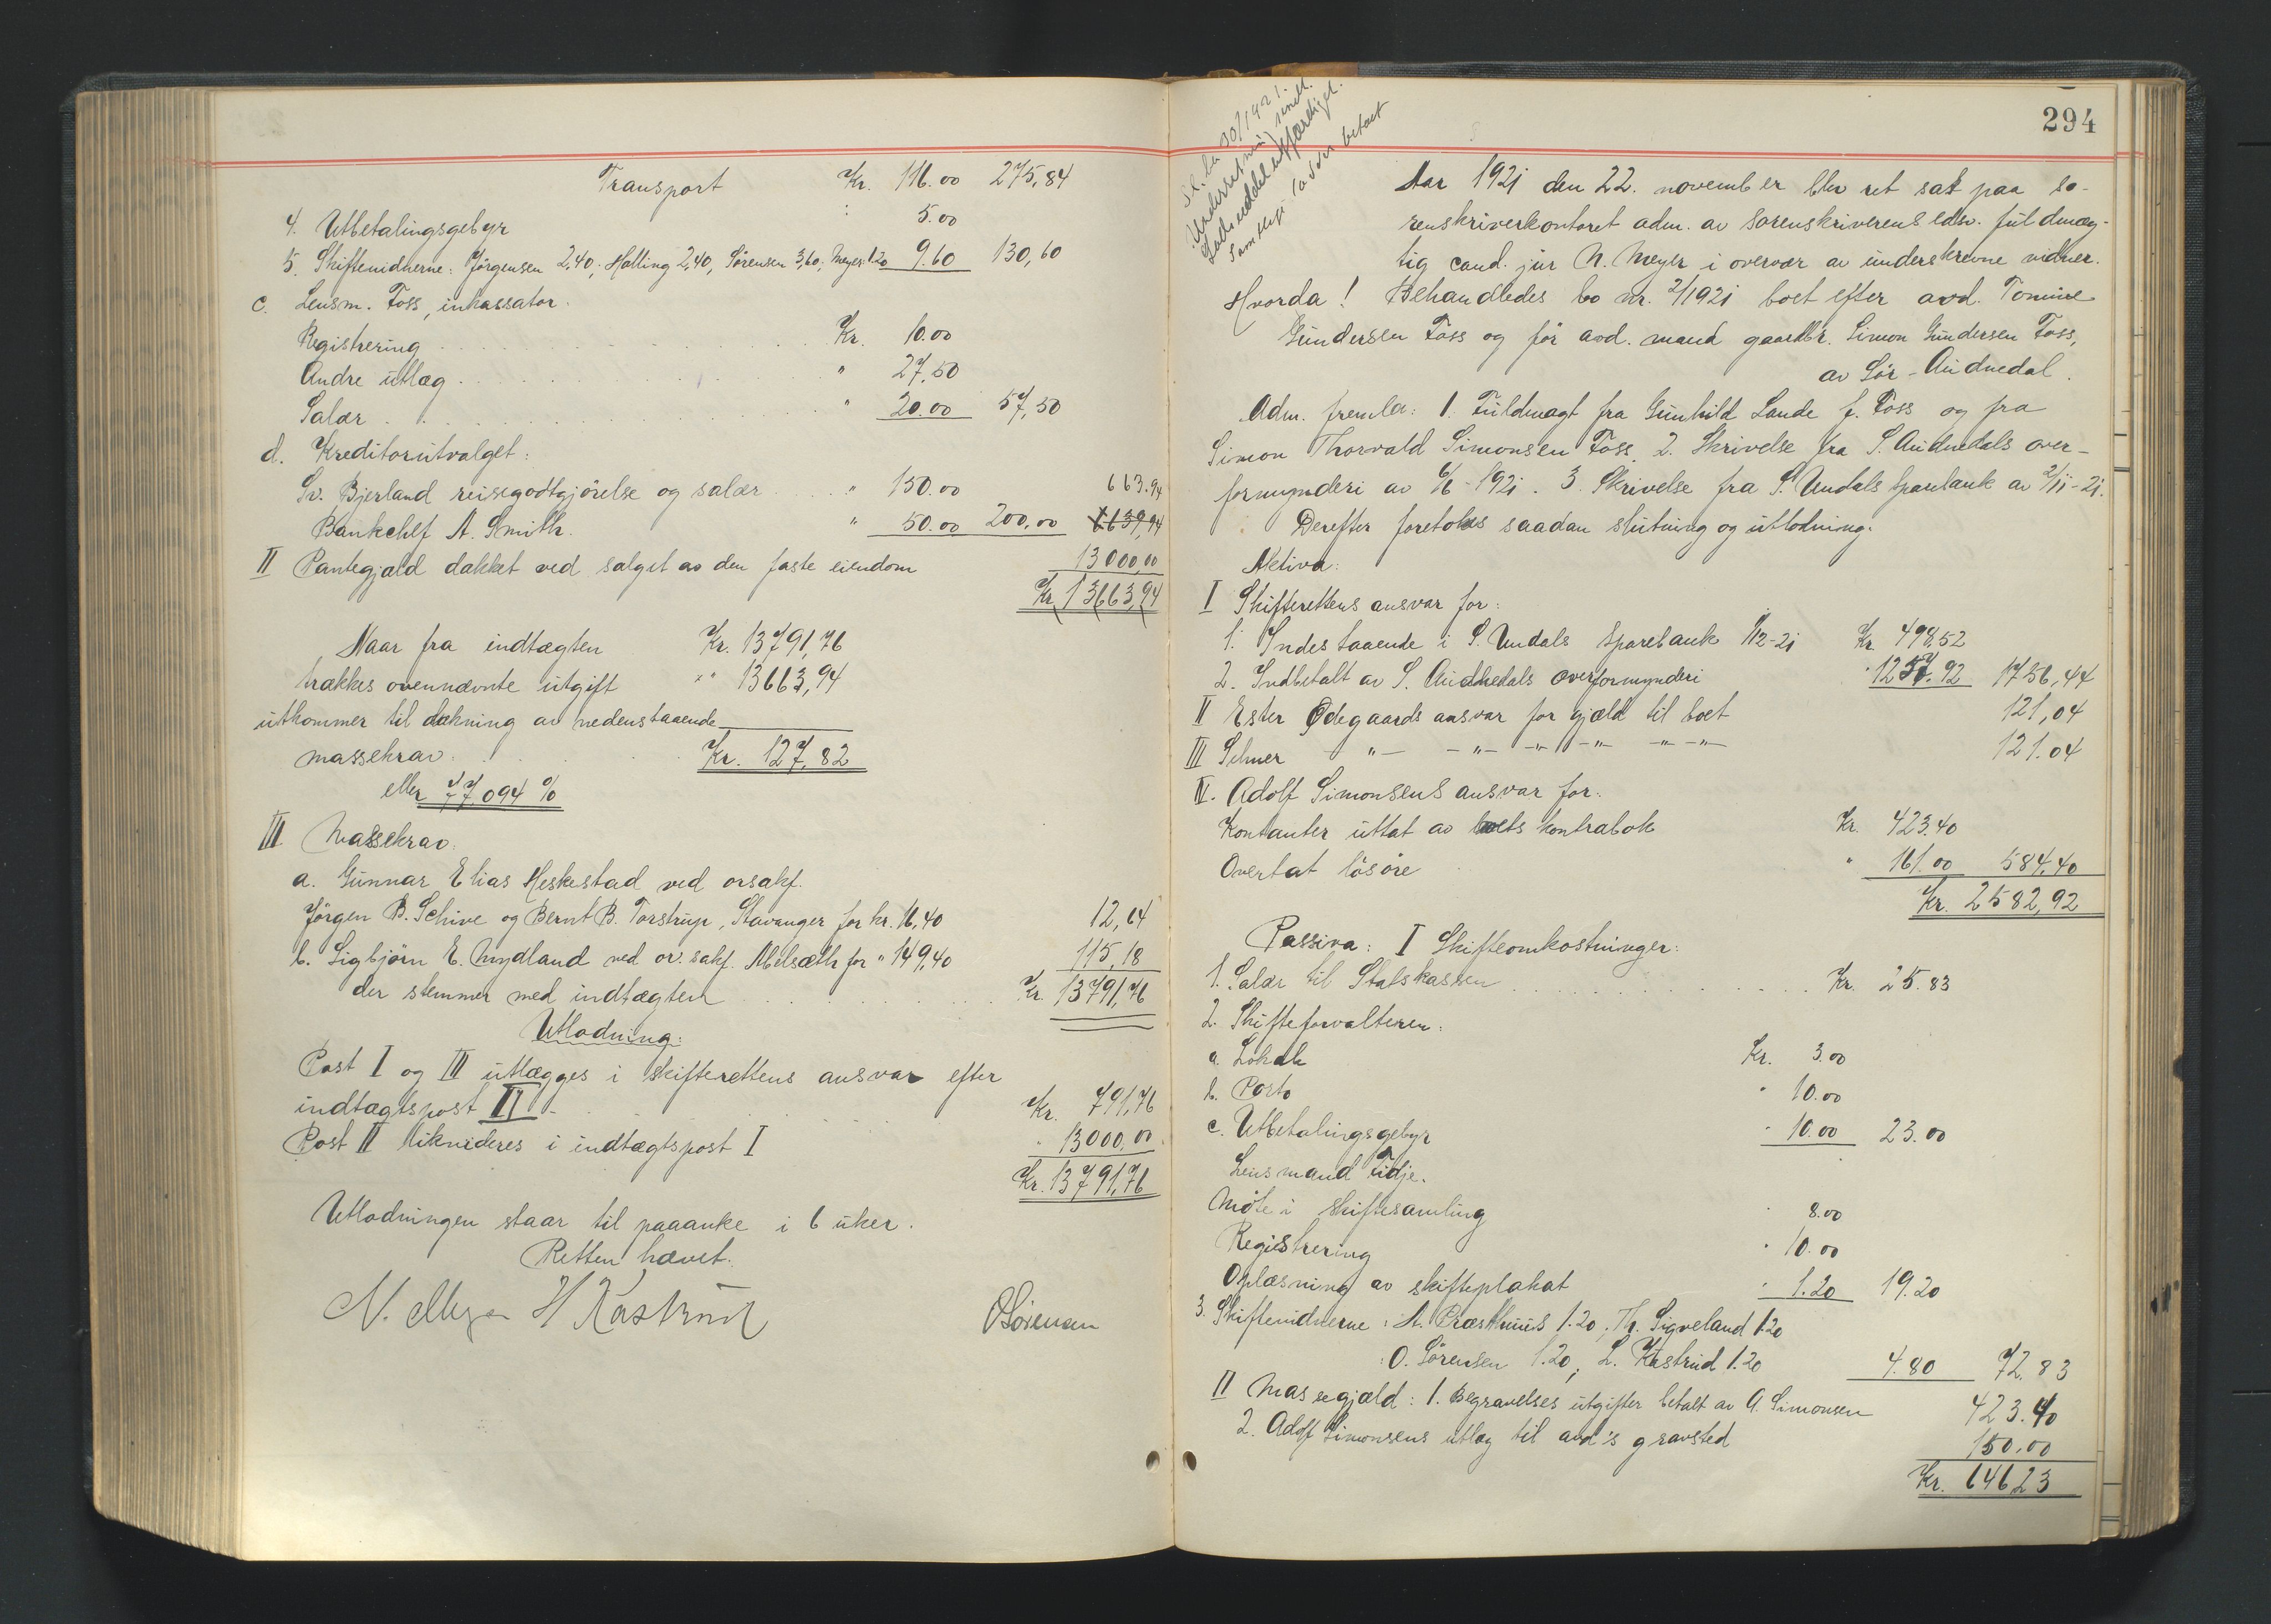 Transport Kr. 116.00 275,84
4. Utbetalingsgebyr 5.00
5. Skiftevidnerne: Jörgensen 2,40, Halling 2,40, Sörensen 3,60, Meyer 1.20 9.60 130,60
c. Lensm. Foss, inkassator.
Registrering Kr. 10.00
Andre utlæg " 27,50
Salær " 20.00 57,50
d. Kreditorutvalget:
Sv. Bjerland reisegodtgjörelse og salær " 150.00 663.94
Bankchef A. Smith. " 50.00 200,00
II Pantegjæld dækket ved salget av den faste eiendom 13000,00
Kr 13663,94
Naar fra indtægten Kr. 13791,76
trækkes ovennævnte utgift " 13663,94
utkommer til dækning av nedenstaaende
massekrav. Kr. 127,82
eller 77,094 %
III Massekrav.
a. Gunnar Elias Heskestad ved orsakf.
Jörgen B. Schive og Bernt B. Torstrup, Stavanger for kr. 16,40 12,64
b. Sigbjörn E. Mydland ved or.sakf. Abelsæth for " 149,40 115,18
der stemmer med indtægten Kr. 13791,76
Utlodning:
Post I og III utlægges i skifterettens ansvar efter
indtægtspost II Kr. 791,76
Post II likvideres i indtægtspost I " 13000.00
Kr. 13791,76
Utlodningen staar til paaanke i 6 uker.
Retten hævet.
N. Meyer H Kastrud OSörensen
294
Aar 1921 den 22. november blev ret sat paa so-
renskriverkontoret adm. av sorenskriverens edsv. fuldmæg-
tig cand. jur N. Meyer i overvær av underskrevne vidner.
Hvorda! Behandledes bo nr. 2/1921 boet efter avd. Tomine
Gundersen Foss og før avd. mand gaardbr. Simon Gundersen Foss,
av Sör-Audnedal.
Adm. fremla: 1. Fuldmagt fra Gunhild Lande f. Foss og fra
Simon Thorvald Simonsen Foss. 2. Skrivelse fra S. Audnedals over-
formynderi av 6/6-1921. 3. Skrivelse fra S. Undals Sparebank av 2/11-21.
Derefter foretokes saadan slutning og utlodning.
Aktiva:
I Skifterettens ansvar for:
1. Indestaaende i S. Undals Sparebank 1/12-21 Kr. 498,52
2. Indbetalt av S. Audnedals overformynderi " 1257.92 1756,44
II Ester Ødegaards ansvar for gjæld til boet 121,04
III Selmer -"- -"- -"- -"- -"- -"- 121.04
IV. Adolf Simonsens ansvar for:
Kontanter uttat av boets kontrabok Kr. 423.40
Overtat lösöre " 161.00 584,40
Kr. 2582,92
Passiva: I Skifteomkostninger:
1. Salær til Statskassen Kr. 25.83
2. Skifteforvalteren:
a. Lokale Kr. 3.00
b. Porto " 10.00
c. Utbetalingsgebyr " 10.00 23.00
Lensmand Fidje.
Möte i skiftesamling " 8.00
Registrering " 10.00
Oplæsning av skifteplakat " 1.20 19.20
3. Skiftevidnerne: A. Præsthuus 1.20, Th. Sigveland 1.20
O. Sörensen 1.20, L. Kastrud 1.20 4.80 72.83
II Massegjæld: 1. Begravelses utgifter betalt av A. Simonsen 423.40
2. Adolf Simonsens utlæg til avd's gravsted 150.00
Kr. 646,23